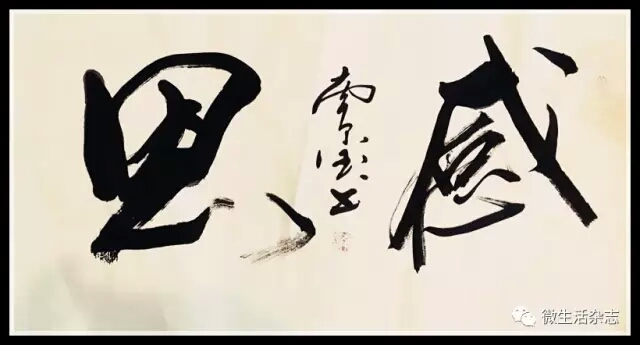 感恩
微生活杂志